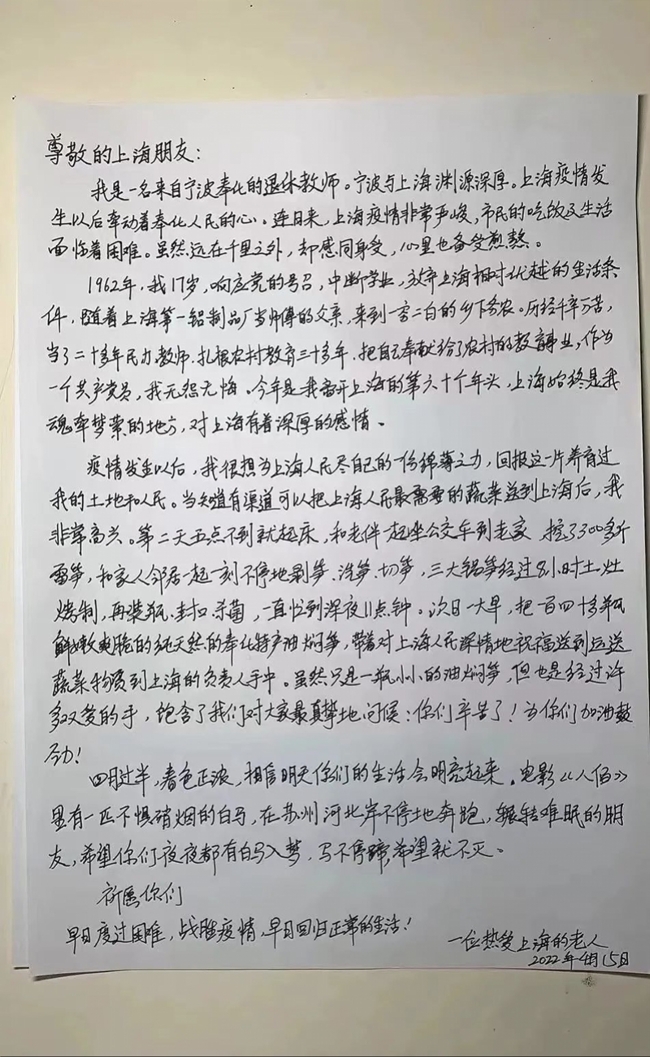 尊敬的上海朋友：
我是一名来自宁波奉化的退休教师。宁波与上海渊源深厚。上海疫情发
生以后牵动着奉化人民的心。连日来，上海疫情非常严峻，市民的吃饭及生活
面临着困难。虽然远在千里之外，却感同身受，心里也备受煎熬。
1962年，我17岁，响应党的号召，中断学业，放弃上海相对优越的生活条
件，随着上海第一铝制品厂当师傅的父亲，来到一穷二白的乡下务农。历经千辛万苦，
当了二十多年民办教师，扎根农村教育三十多年，把自己奉献给了农村的教育事业，作为
一个共产党员，我无怨无悔。今年是我离开上海的第六十个年头，上海始终是我
魂牵梦萦的地方，对上海有着深厚的感情。
疫情发生以后，我很想为上海人民尽自己的一份绵薄之力，回报这一片养育过
我的土地和人民。当知道有渠道可以把上海人民最需要的蔬菜送到上海后，我
非常高兴。第二天五点不到就起床，和老伴一起坐公交车到老家，挖了300多斤
雷笋，和家人邻居一起一刻不停地剥笋、洗笋、切笋，三大锅笋经过8小时土灶
烤制，再装瓶、封口杀菌，一直忙到深夜11点钟。次日一大早，把一百四十多瓶
鲜嫩爽脆的纯天然的奉化特产油焖笋，带着对上海人民深情地祝福送到运送
蔬菜物资到上海的负责人手中。虽然只是一瓶小小的油焖笋，但也是经过许
多双爱的手，饱含了我们对大家最真挚地问候：你们辛苦了！为你们加油鼓
劲！
四月过半，春色正浓，相信明天你们的生活会明亮起来。电影《八佰》
里有一匹不惧硝烟的白马，在苏州河北岸不停地奔跑，辗转难眠的朋
友，希望你们夜夜都有白马入梦，马不停蹄，希望就不灭。
祈愿你们
早日度过困难，战胜疫情，早日回归正常的生活！
一位热爱上海的老人
2022年4月15日